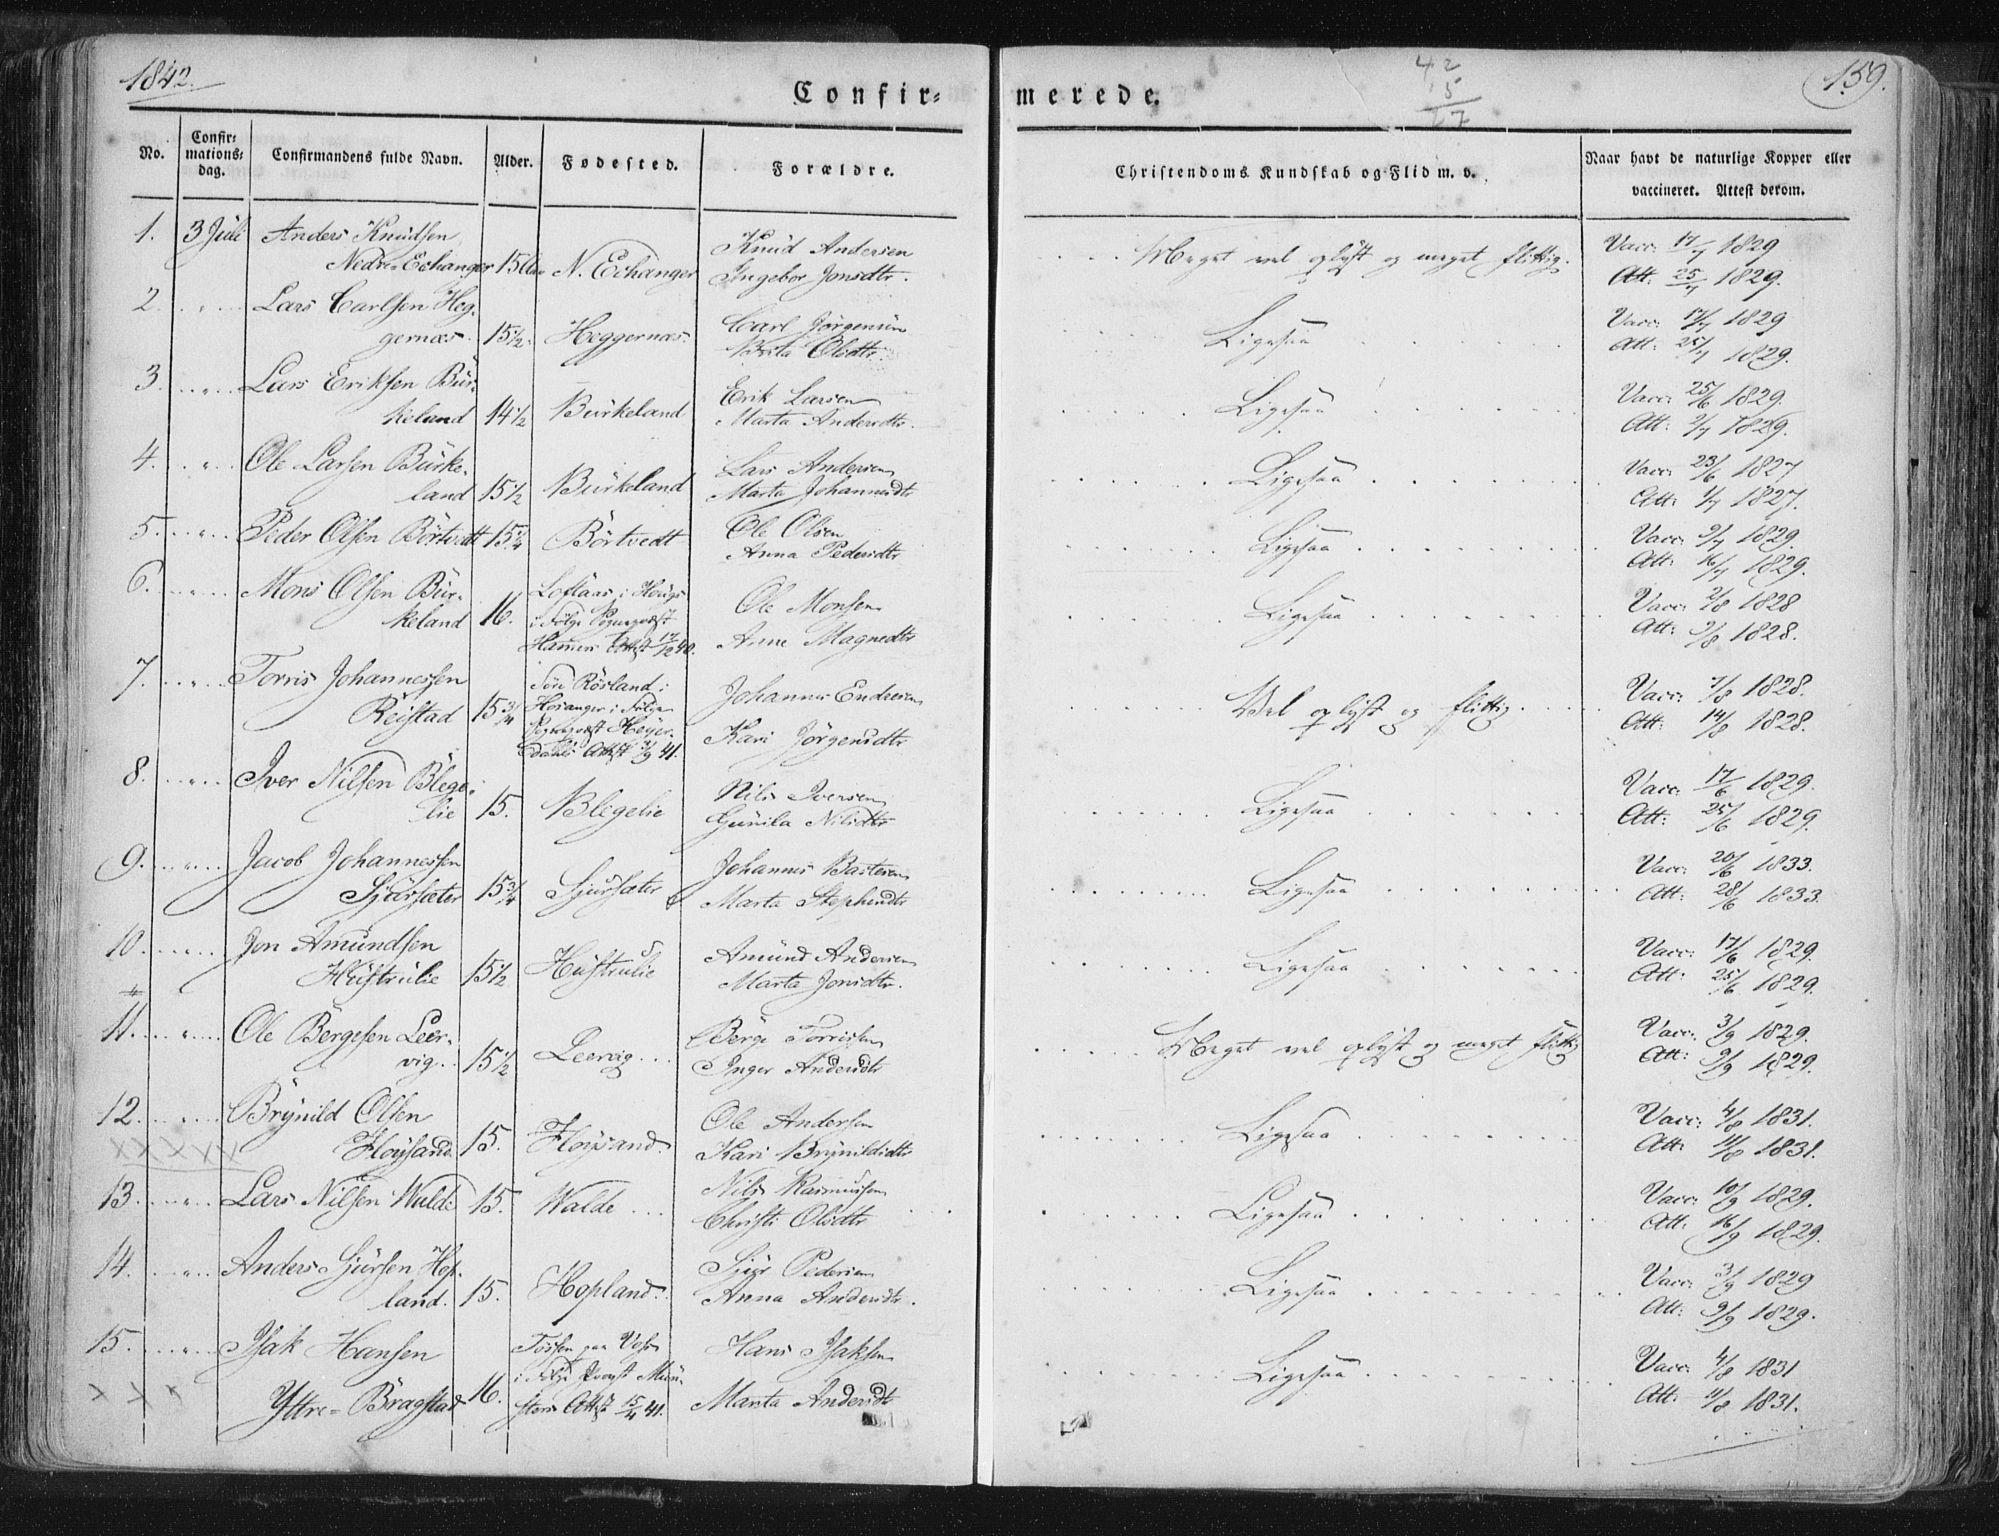 1842.
Confir- merede.
42
15
27
159.
No.
Confir-
mations-
dag.
Confirmandens fulde Navn.
Alder.
Fødested.
Forældre.
Christendoms Kundskab og Flid m. v.
Naar havt de naturlige Kopper eller
vaccineret. Attest derom.
1. 3 Juli Anders Knudsen Knud Andersen Meget vel oplyst og meget flittig. Vacc: 17/7 1829
Nedre-Echanger 15 N. Echanger Ingebor Jonsdtr. Att: 25/7 1829.
2. " Lars Carlsen Heg- Carl Jörgensen Ligesaa Vacc: 17/7 1829
gernæs. 15 1/2 Heggernæs. Brita Olsdtr. Att: 25/7 1829.
3. " Lars Eriksen Bür- Erik Larsen Ligesaa Vacc: 25/6 1829.
keland 14 1/2 Burkeland Marta Andersdtr. Att: 2/7 1829.
4. " Ole Larsen Bürke- Lars Andersen Ligesaa Vacc: 23/6 1827
land 15 1/2 Burkeland Marta Johannesdtr Att: 1/7 1827.
5. " Peder Olsen Börtvedt 15 3/4 Börtvedt Ole Olsen Ligesaa Vacc: 9/7 1829
Anna Pedersdtr Att: 16/7 1829.
6. " Mons Olsen Bür- Loftaas i Houg- Ole Monsen Ligesaa Vacc: 2/8 1828
keland 16. i Følge Sognepræst
Hamers Attest 17/12 40. Anne Magnedtr Att: 9/8 1828.
7. " Torris Johannessen Søre Røsland i Johannes Endresen Vel oplyst og flittig Vacc: 7/8 1828.
Reistad 15 3/4 Hosanger i Følge
Sognepræst Heyer- Kari Jörgensdtr Att: 14/8 1828.
dahls Attest 3/9 41.
8. " Iver Nilsen Blege- Nils Iversen Ligesaa Vacc: 17/6 1829.
lie 15. Blegelie Gunila Nilsdtr Att: 25/6 1829.
9. " Jacob Johannessen Johannes Bastesen Ligesaa Vacc: 20/6 1833.
Sjürsæter 15 3/4 Sjursæter Marta Stephensdtr Att: 28/6 1833.
10. " Jon Amundsen Amund Andersen Ligesaa Vacc: 17/6 1829.
Hüstrulie 15 1/2 Hustrulie Marta Jonsdtr. Att: 25/6 1829.
11. " Ole Bergesen Leer- Börge Torrissen Meget vel oplyst og meget flittig Vacc: 3/9 1829.
vig. 15 1/2 Leervig Inger Andersdtr Att: 9/9 1829.
12. " Brynild Olsen Ole Andersen Ligesaa Vacc: 4/8 1831.
Hoysand. 15. Hoysand. Kari Brynildsdtr Att: 11/8 1831.
13. " Lars Nilsen Walde 15. Walde Nils Rasmussen Ligesaa Vacc: 10/9 1829.
Christi Olsdtr Att: 16/9 1829.
14. " Anders Sjürsen Hop- Sjur Pedersen Ligesaa Vacc: 3/9 1829
land. 15. Hopland. Anna Andersdtr. Att: 9/9 1829.
15. " Isak Hansen paa Voss Hans Isaksen Ligesaa Vacc: 4/8 1831
i Følge Provst Mün-
Yttre-Bragstad 16. sters Attest 15/4 41. Marta Andersdtr Att: 11/8 1831.